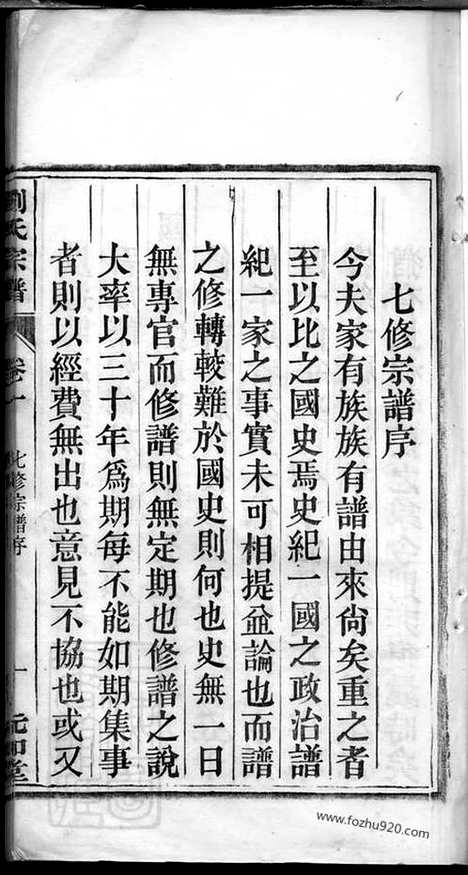 七修宗譜序
今夫家有族族有譜由來尙矣重之者
至以比之國史焉史紀一國之政治譜
紀一家之事實未可相提並論也而譜
之修轉較難於國史則何也史無一日
無專官而修譜則無定期也修譜之說
大率以三十年爲期每不能如期集事
者則以經費無出也意見不協也或又
劉氏宗譜 卷一 七修宗譜序 一 元和堂
www.fozhu920.com